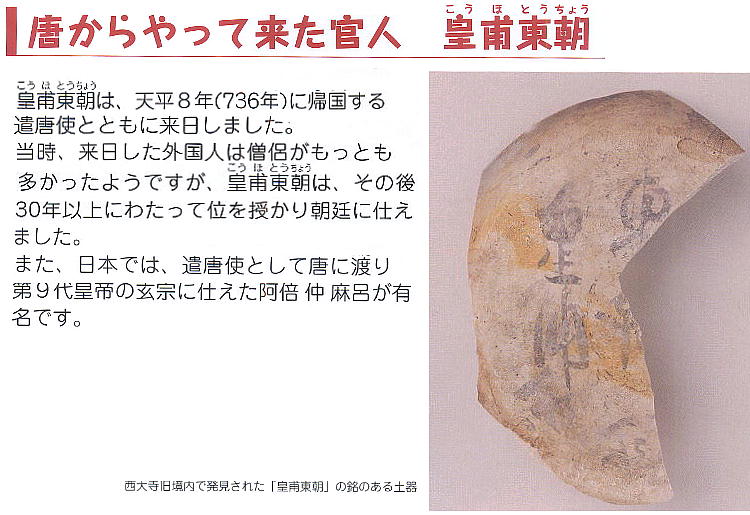 唐からやって来た官人 皇甫東朝
こうほとうちょう
こうほとうちょう
皇甫東朝は、天平8年(736年)に帰国する
遣唐使とともに来日しました。
当時、来日した外国人は僧侶がもっとも
こうほとうちょう
多かったようですが、皇甫東朝は、その後
30年以上にわたって位を授かり朝廷に仕え
ました。
また、日本では、遣唐使として唐に渡り
第9代皇帝の玄宗に仕えた阿倍 仲 麻呂が有
名です。
皇甫
西大寺旧境内で発見された「皇甫東朝」の銘のある土器